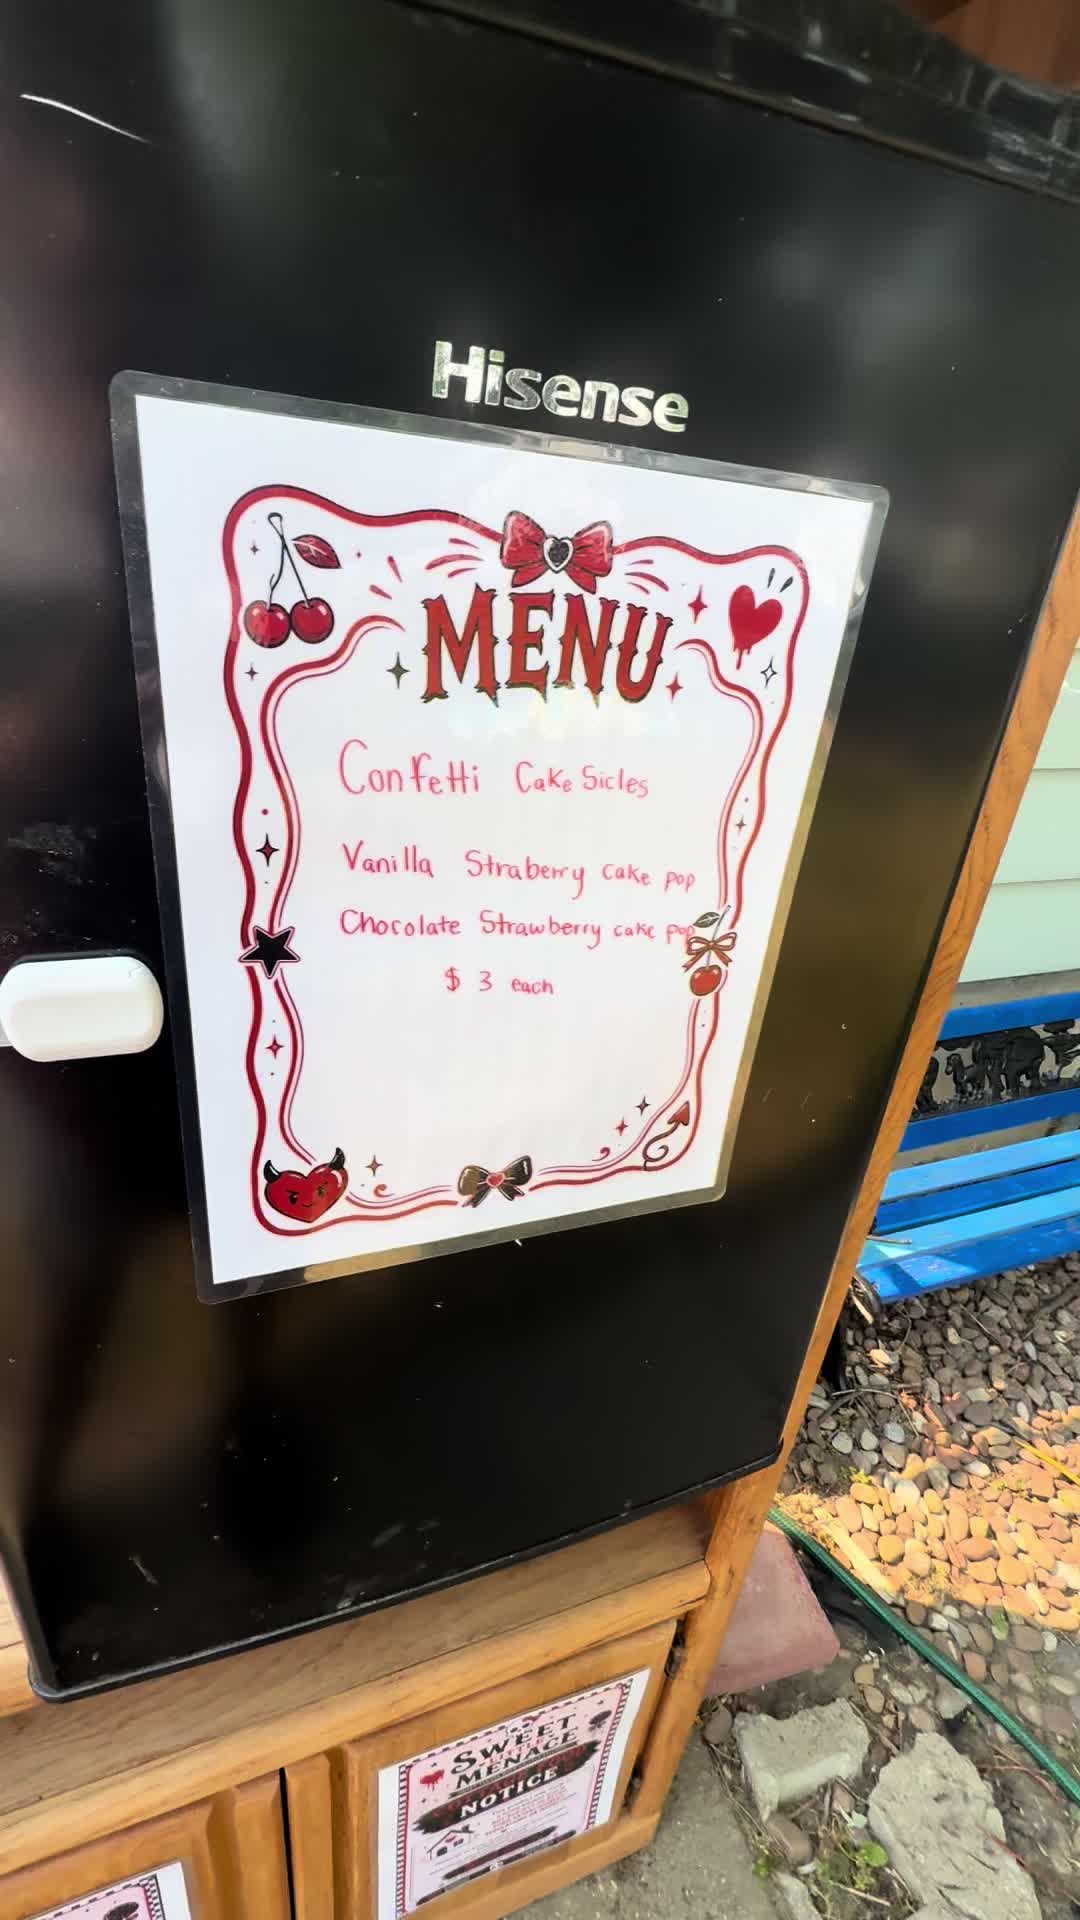 Hisense
MENU
Confetti Cake Sicles
Vanilla Straberry cake pop
Chocolate Strawberry cake pop
$ 3 each
SWEET
LITTLE
MENACE
NOTICE